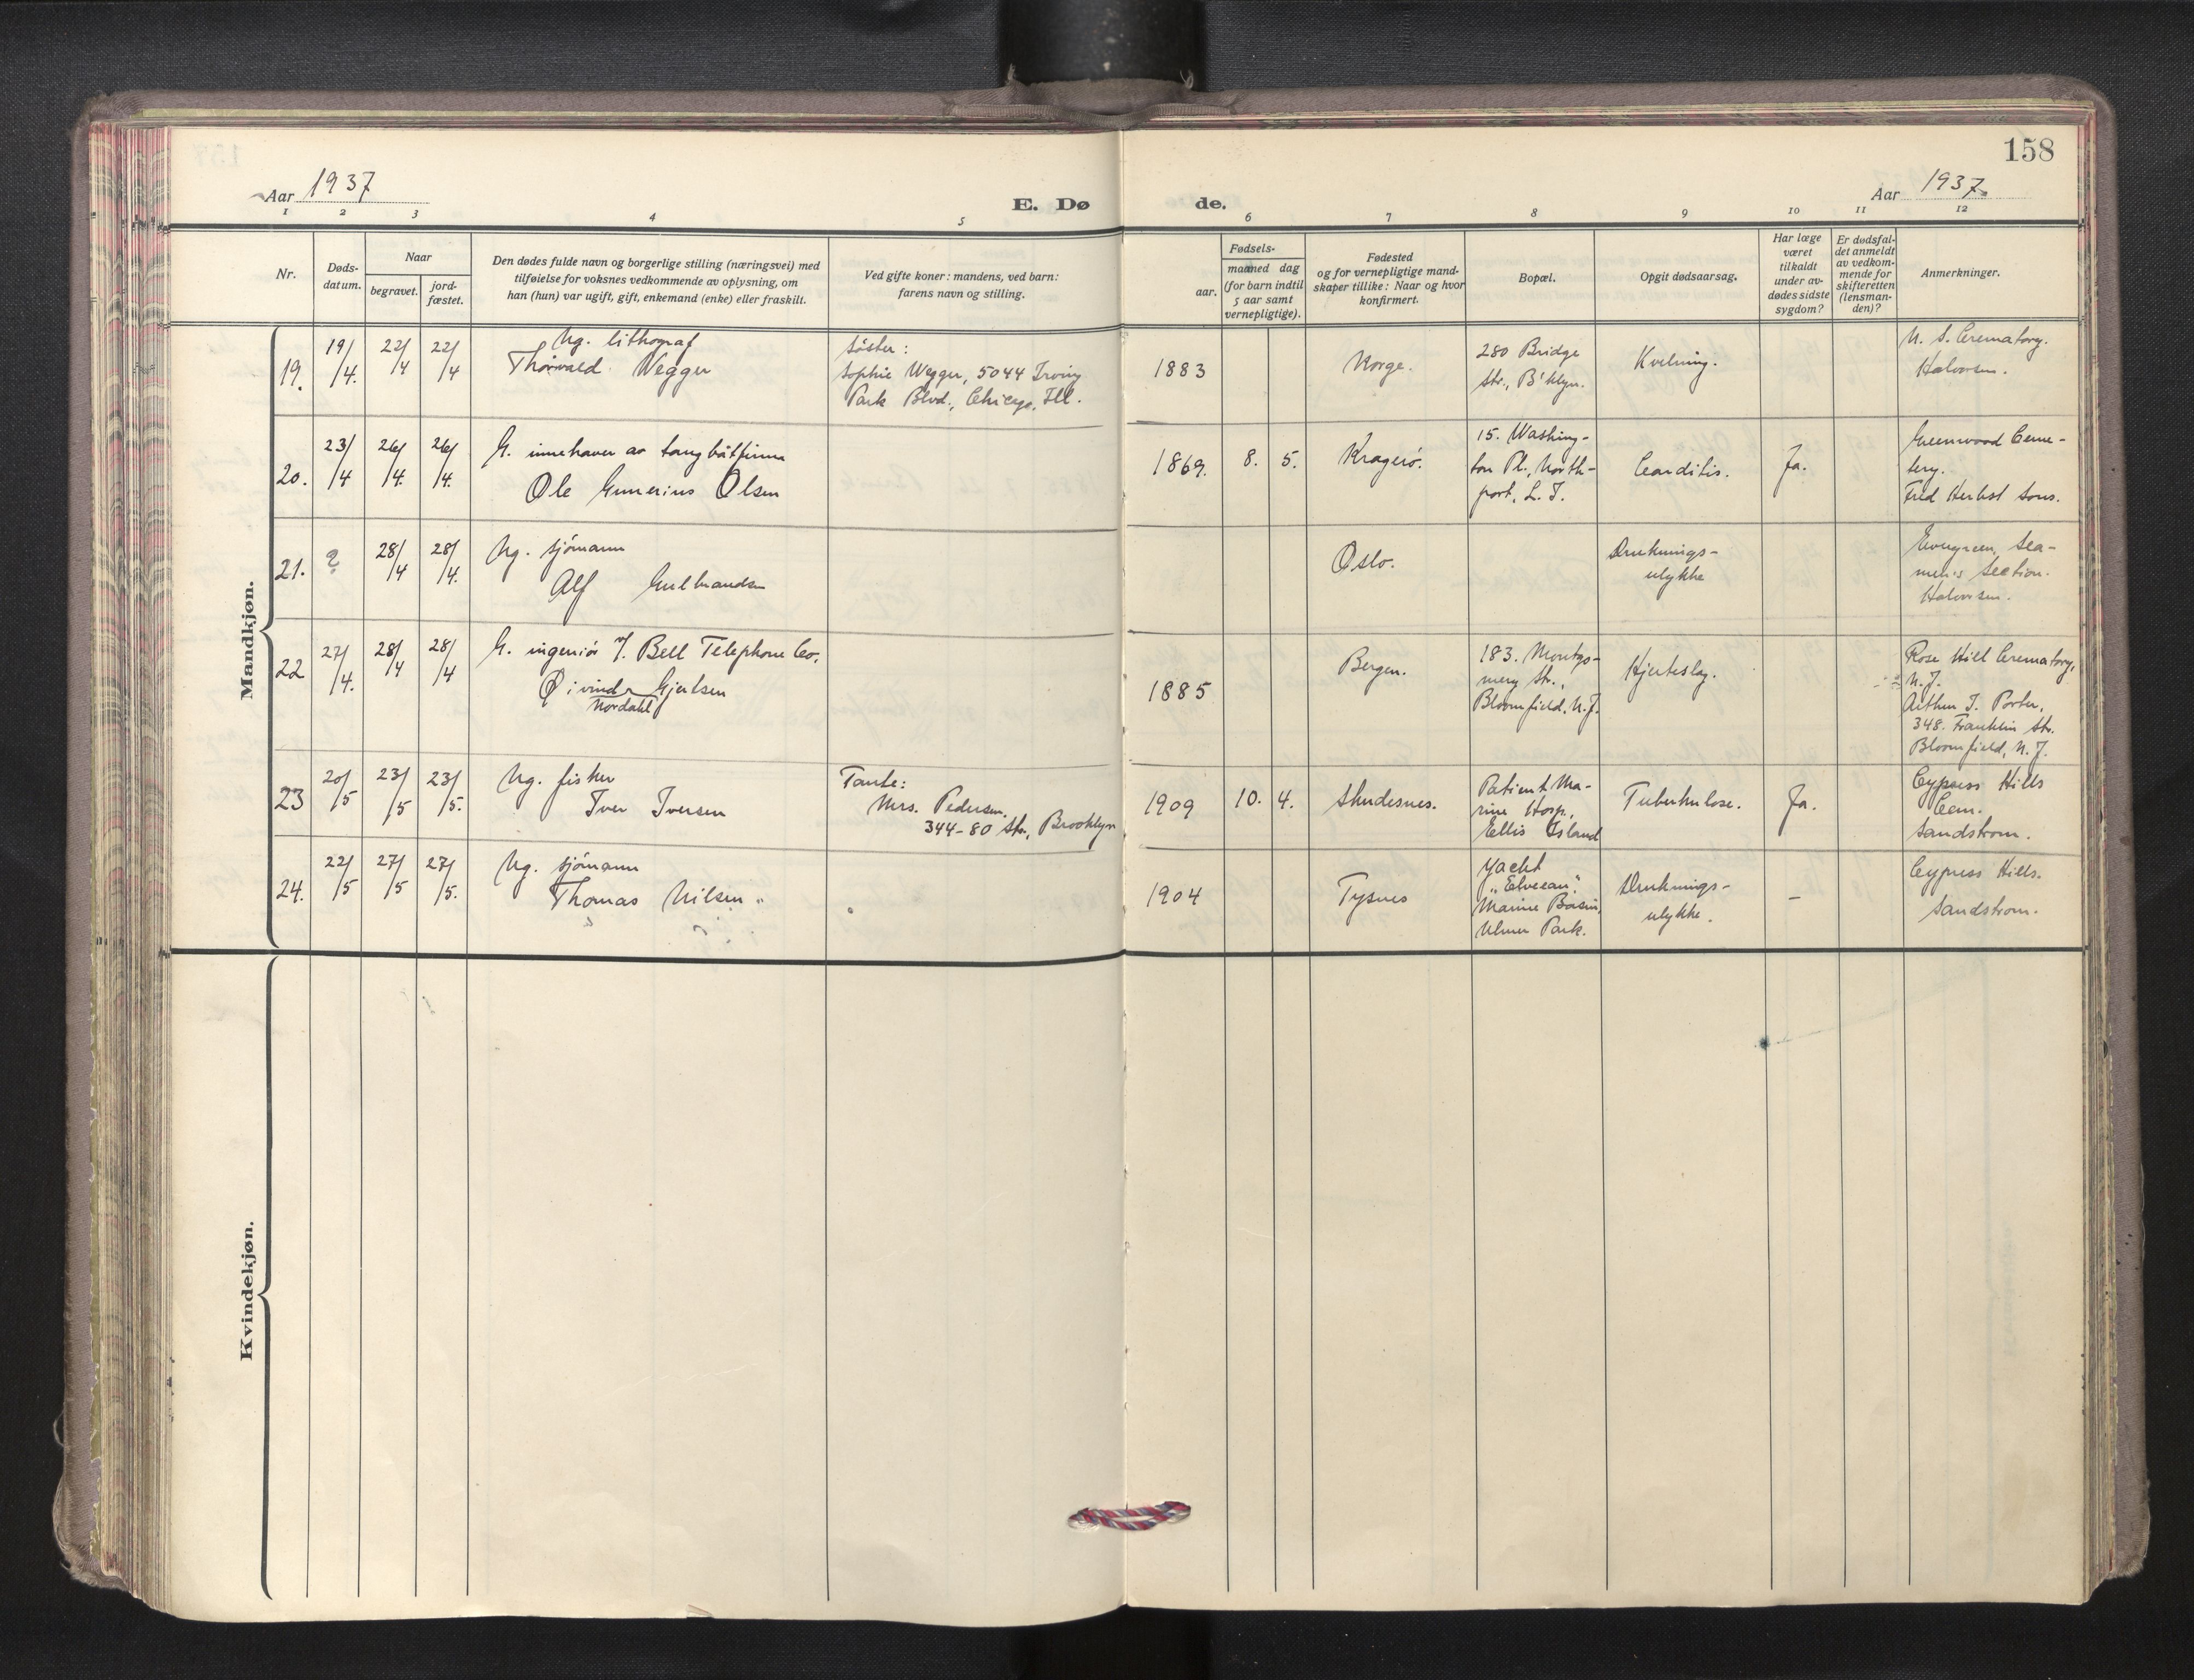 158
Aar 1937
E. Dø de.
Aar 1937.
1 2 3 4 5 6 7 8 9 10 11 12
Nr.
Døds-
datum.
Naar
begravet.
jord-
fæstet.
Den dødes fulde navn og borgerlige stilling (næringsvei) med
tilføielse for voksnes vedkommende av oplysning, om
han (hun) var ugift, gift, enkemand (enke) eller fraskilt.
Ved gifte koner: mandens, ved barn:
farens navn og stilling.
Fødsels-
aar.
maaned dag
(for barn indtil
5 aar samt
vernepligtige).
Fødested
og for vernepligtige mand-
skaper tillike: Naar og hvor
konfirmert.
Bopæl.
Opgit dødsaarsag.
Har læge
været
tilkaldt
under av-
dødes sidste
sygdom?
Er dødsfal-
det anmeldt
av vedkom-
mende for
skifteretten
(lensman-
den)?
Anmerkninger.
Mandkjøn.
19. 19/4. 22/4 22/4
Ug. lithograf
Thorvald Wegger
Søster:
Sophie Wegger, 5044 Irving
Park Blvd., Chicago, Ill.
1883
Norge.
280 Bridge
Str., B'klyn.
Kvelning.
U. S. Crematory.
Halvorsen.
20. 23/4 26/4. 26/4.
G. innehaver av taugbåtfirma
Ole Gunerius Olsen
1869. 8. 5.
Kragerö.
15. Washing-
ton Pl., North-
port, L. I.
Carditis.
Ja.
Greenwood Ceme-
tery.
Fred Herbst Sons.
21. ? 28/4 28/4.
Ug. sjömann
Alf Gulbrandsen
Oslo.
Druknings-
ulykke
Evergreen, Sea-
men's Section.
Halvorsen.
22 27/4. 28/4 28/4
G. ingeniör v/. Bell Telephone Co.
Øivind Gjertsen
Nordahl
1885
Bergen.
183. Montgo-
mery Str.,
Bloomfield, N.J.
Hjerteslag.
Rose Hill Crematory,
N.J.
Arthur T. Porter,
348. Franklin Str.
Bloomfield, N. J.
23 20/5 23/5 23/5.
Ug. fisker
Iver Iversen
Tante:
Mrs. Pedersen,
344-80 Str., Brooklyn
1909 10. 4.
Skudesnes.
Patient Ma-
rine Hosp.,
Ellis Island
Tuberkulose.
Ja.
Cypress Hills
Cem.
Sandstrom.
24. 22/5 27/5 27/5.
Ug. sjömann
Thomas Nilsen
1904
Tysnes
Yacht
Marine Basin,
Ulmer Park.
Druknings-
ulykke.
-
Cypress Hills.
Sandstrom.
Kvindekjøn.